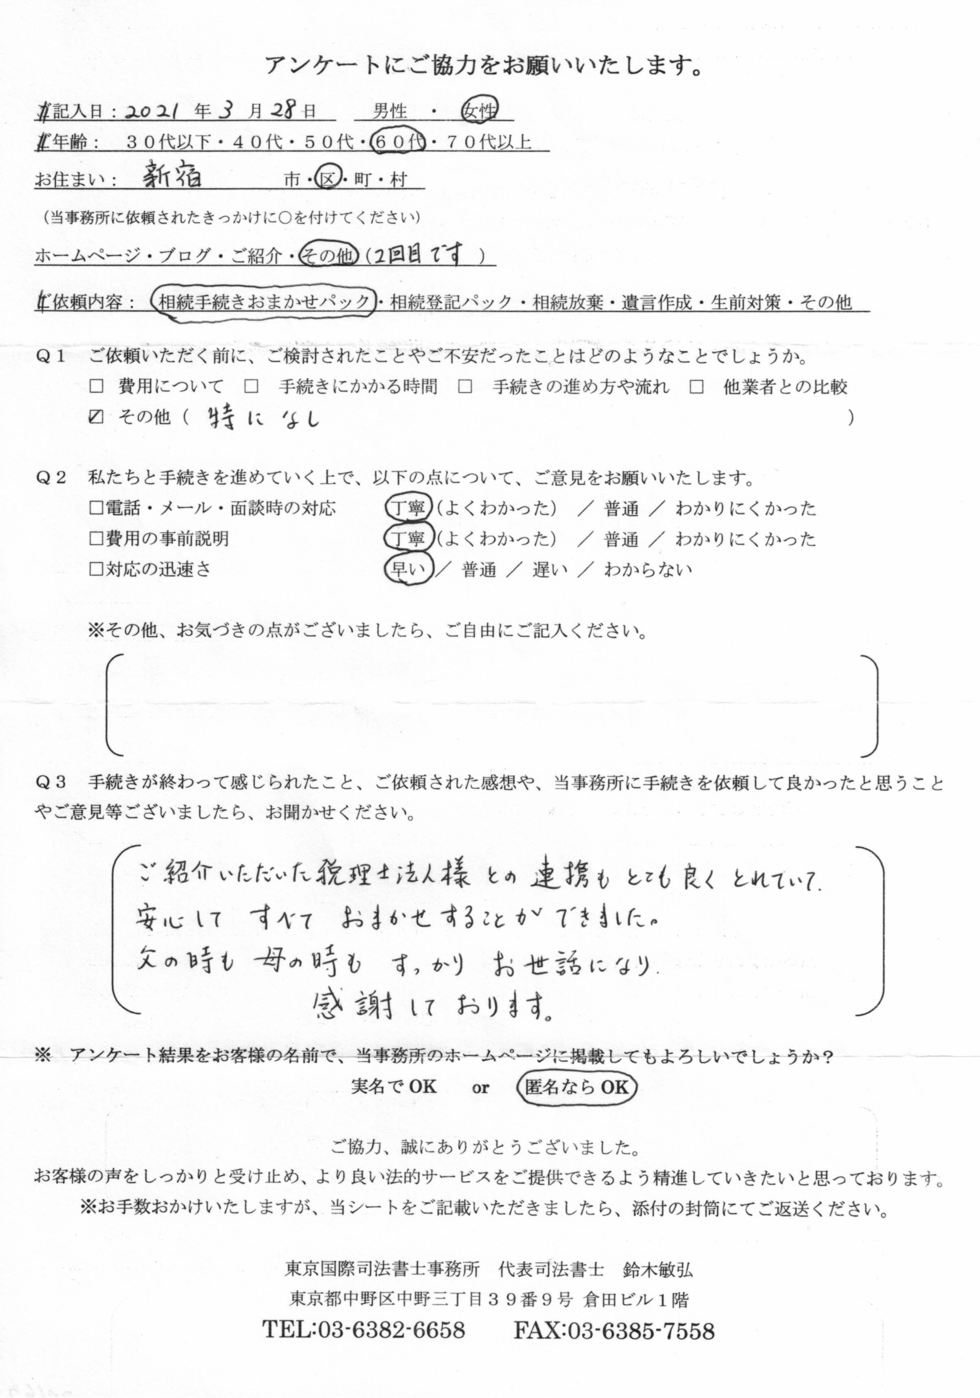 アンケートにご協力をお願いいたします。
ご記入日：2021 年 3 月 28 日　男性 ・ 女性
ご年齢：　３０代以下・４０代・５０代・６０代・７０代以上
お住まい：　新宿　市・区・町・村
（当事務所に依頼されたきっかけに○を付けてください）
ホームページ・ブログ・ご紹介・その他（2回目です　）
ご依頼内容：　相続手続きおまかせパック・相続登記パック・相続放棄・遺言作成・生前対策・その他
Ｑ１　ご依頼いただく前に、ご検討されたことやご不安だったことはどのようなことでしょうか。
□ 費用について　□　手続きにかかる時間　□　手続きの進め方や流れ　□　他業者との比較
☑ その他（　特になし　）
Ｑ２　私たちと手続きを進めていく上で、以下の点について、ご意見をお願いいたします。
□電話・メール・面談時の対応　丁寧（よくわかった）　／　普通　／　わかりにくかった
□費用の事前説明　丁寧（よくわかった）　／　普通　／　わかりにくかった
□対応の迅速さ　早い／　普通　／　遅い　／　わからない
※その他、お気づきの点がございましたら、ご自由にご記入ください。
Ｑ３　手続きが終わって感じられたこと、ご依頼された感想や、当事務所に手続きを依頼して良かったと思うこと
やご意見等ございましたら、お聞かせください。
ご紹介いただいた税理士法人様との連携もとても良くとれていて、
安心してすべておまかせすることができました。
父の時も母の時もすっかりお世話になり、
感謝しております。
※　アンケート結果をお客様の名前で、当事務所のホームページに掲載してもよろしいでしょうか？
実名でOK　or　匿名ならOK
ご協力、誠にありがとうございました。
お客様の声をしっかりと受け止め、より良い法的サービスをご提供できるよう精進していきたいと思っております。
※お手数おかけいたしますが、当シートをご記載いただきましたら、添付の封筒にてご返送ください。
東京国際司法書士事務所　代表司法書士　鈴木敏弘
東京都中野区中野三丁目３９番９号 倉田ビル１階
TEL:03-6382-6658　FAX:03-6385-7558